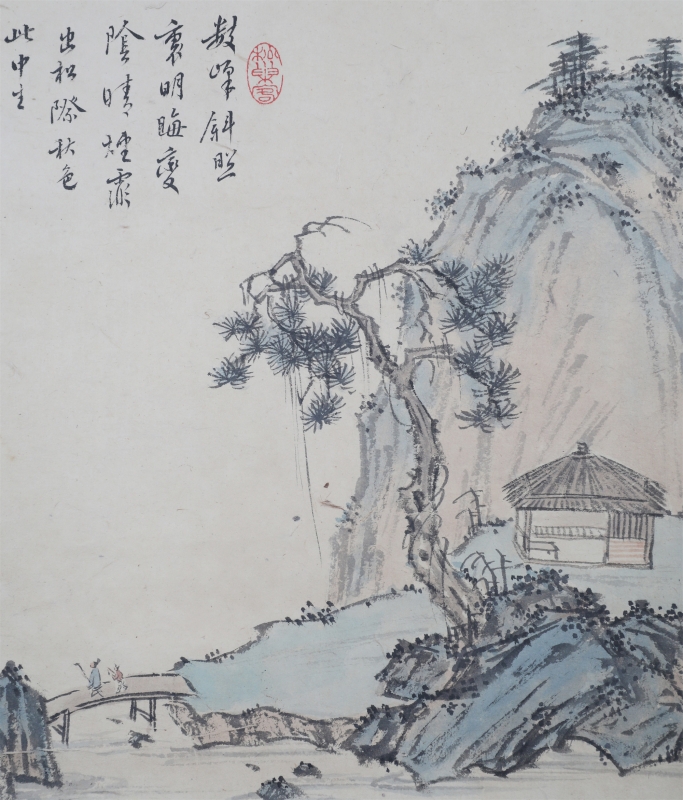 数峰斜照
裏明晦變
陰晴煙霏
出松際秋色
此中生